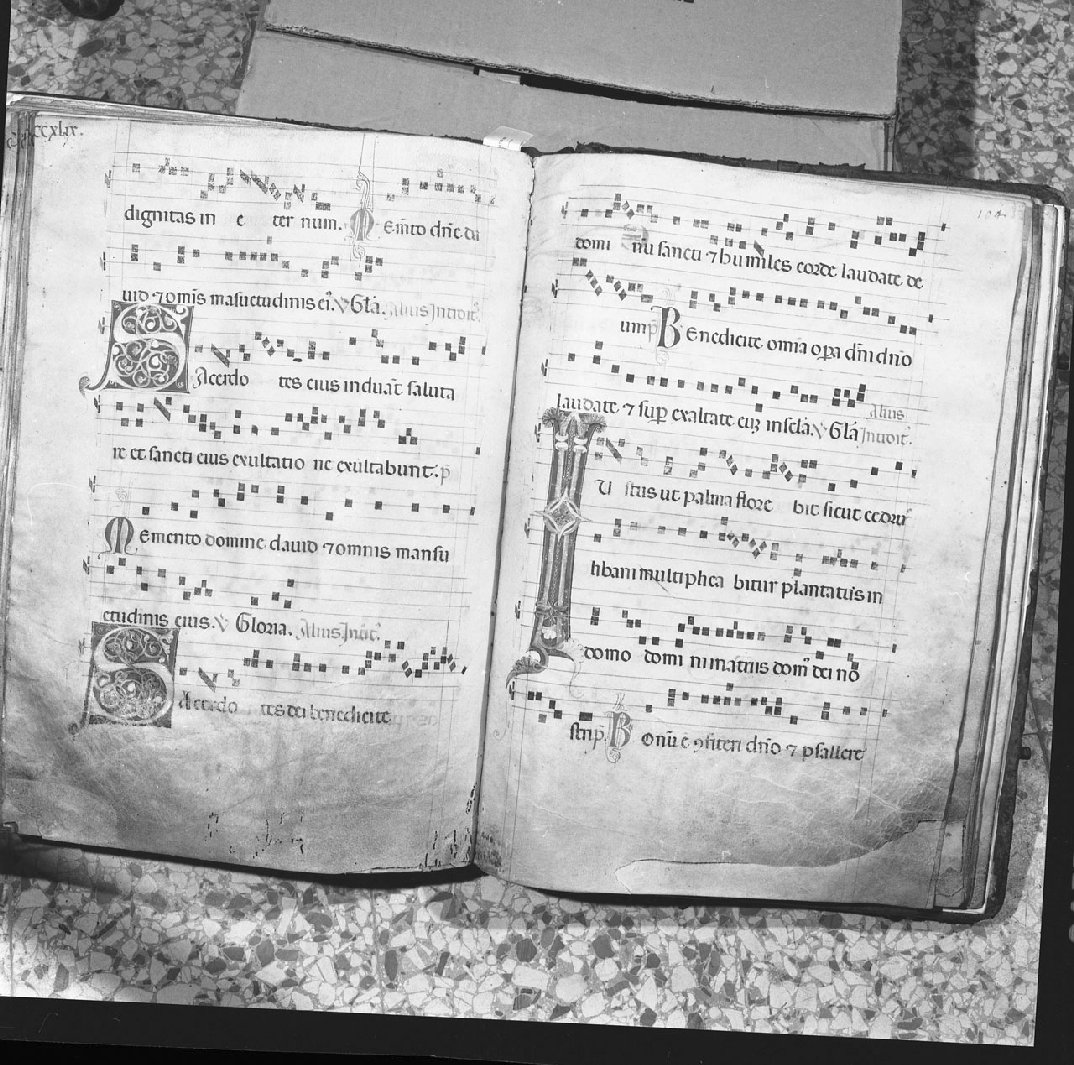 ccxlix.
dignitas in e ter num. Memto dne da
uid ⁊ omis mansuetudinis ei. V Gla. Alius Introit.
Sacerdo tes eius induat saluta
re et sancti eius exultatio ne exultabunt. p
Memento domine dauid ⁊ omnis mansu
etudinis eius. V Gloria. Alius Introit.
Sacerdo tes dei benedicite
104
domi nu sancti ⁊ humiles corde laudate de
um. p Benedicite omia opa dni dno
laudate ⁊ sup exaltate eu in secla. V Gla Alius Introit.
Iustus ut palma flore bit sicut cedrus
libani multiplica bitur plantatus in
domo domi ni in atriis dom dei no
stri. p Bonu e confiteri dno ⁊ psallere